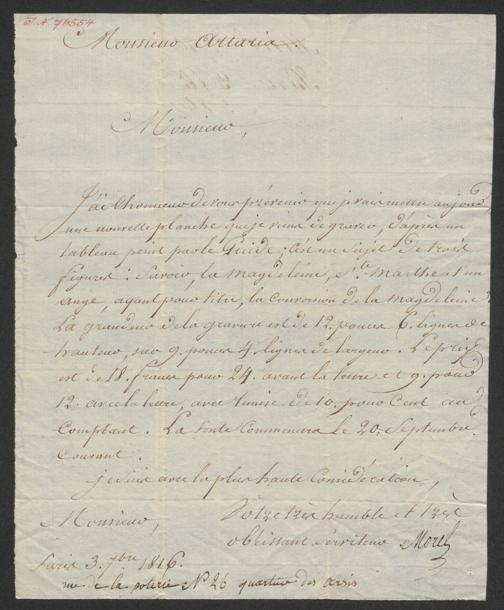 I.N. 76554
Monsieur Artaria.
Monsieur,
J'ai l'honneur de vous prévenir que je vais mettre au jour
une nouvelle planche que je viens de graver, d'après un
tableau peint par le Guide, c'est un Sujet de trois
figures: Savoir, la Magdeleine, Ste. Marthe et un
ange, ayant pour titre, la Conversion de la Magdeleine.
La grandeur de la gravure est de 12 pouces 6. lignes de
hauteur, sur 9. pouces 4. lignes de largeur. Le prix
est de 18. francs pour 24. avant la lettre et 9. pour
12. avec la lettre, avec remise de 10. pour Cent au
Comptant. La vente Commencera le 20. Septembre
Courant.
je suis avec la plus haute Considération,
Monsieur,
Votre très humble et très
obéissant Serviteur Morel
Paris 3. 7bre 1816.
rue de la poterie N° 26 quartier des arsis